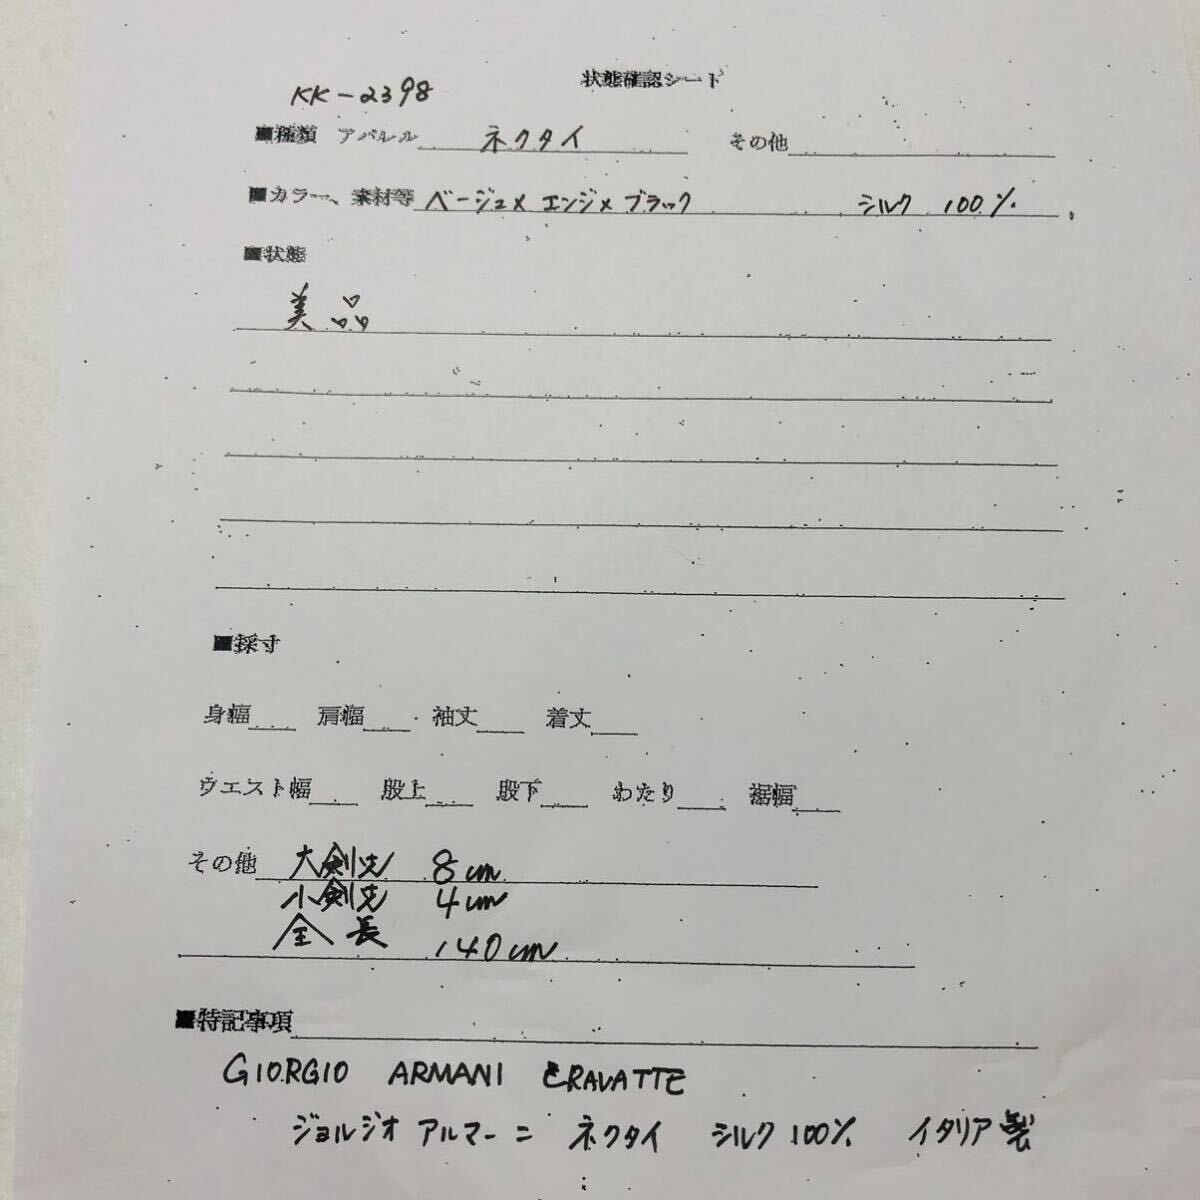 状態確認シート
KK-2398
■種類 アパレル ネクタイ その他
■カラー、素材等 ベージュ×エンジ×ブラック シルク 100%
■状態
美品
■採寸
身幅 肩幅 袖丈 着丈
ウエスト幅 股上 股下 わたり 裾幅
その他 大剣先 8cm
小剣先 4cm
全長 140cm
■特記事項
GIORGIO ARMANI CRAVATTE
ジョルジオ アルマーニ ネクタイ シルク100% イタリア製